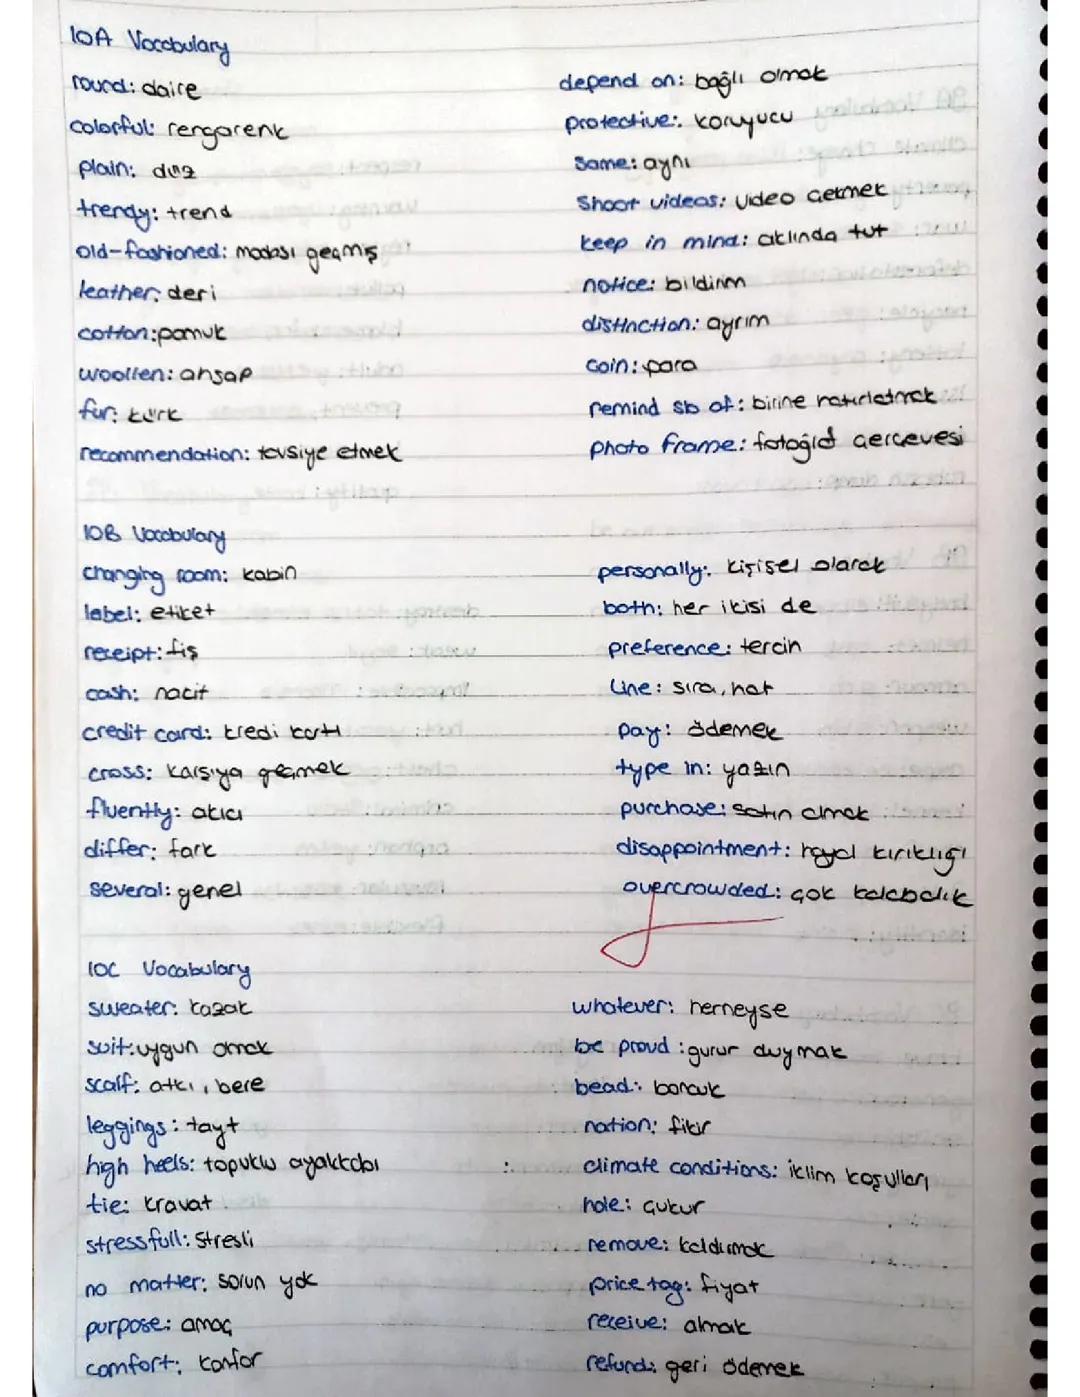 10A Vocabulary
round: daire
colorful: rengarenk
plain: düz
trendy: trend
old-fashioned: modası geçmiş
leather: deri
cotton: pamuk
woollen: ahşap
fur: kürk
recommendation: tavsiye etmek
depend on: bağlı olmak
protective: koruyucu
same: aynı
shoot videos: video çekmek
keep in mind: aklında tut
notice: bildirim
distinction: ayrım
coin: para
remind sb of: birine hatırlatmak
photo frame: fotoğraf çerçevesi
10B Vocabulary
changing room: kabin
label: etiket
receipt: fiş
cash: nakit
credit card: kredi kartı
cross: karşıya geçmek
fluently: akıcı
differ: fark
several: genel
personally: kişisel olarak
both: her ikisi de
preference: tercih
line: sıra, hat
pay: ödemek
type in: yazın
purchase: satın almak
disappointment: hayal kırıklığı
overcrowded: çok kalabalık
10C Vocabulary
sweater: kazak
suit: uygun omak
scalf: atkı, bere
leggings: tayt
high heels: topuklu ayakkabı
tie: kravat
stressfull: stresli
no matter: sorun yok
purpose: amaç
comfort: konfor
whatever: herneyse
be proud: gurur duymak
bead: boncuk
nation: fikir
climate conditions: iklim koşulları
hole: çukur
remove: kaldırmak
price tag: fiyat
receive: almak
refund: geri ödemek